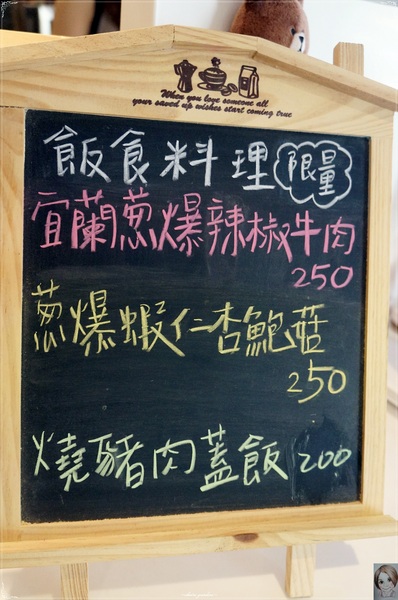 When you love someone all
your saved up wishes start coming true
飯食料理 限量
宜蘭蔥爆辣椒牛肉
250
蔥爆蝦仁杏鮑菇
250
燒豬肉蓋飯 200